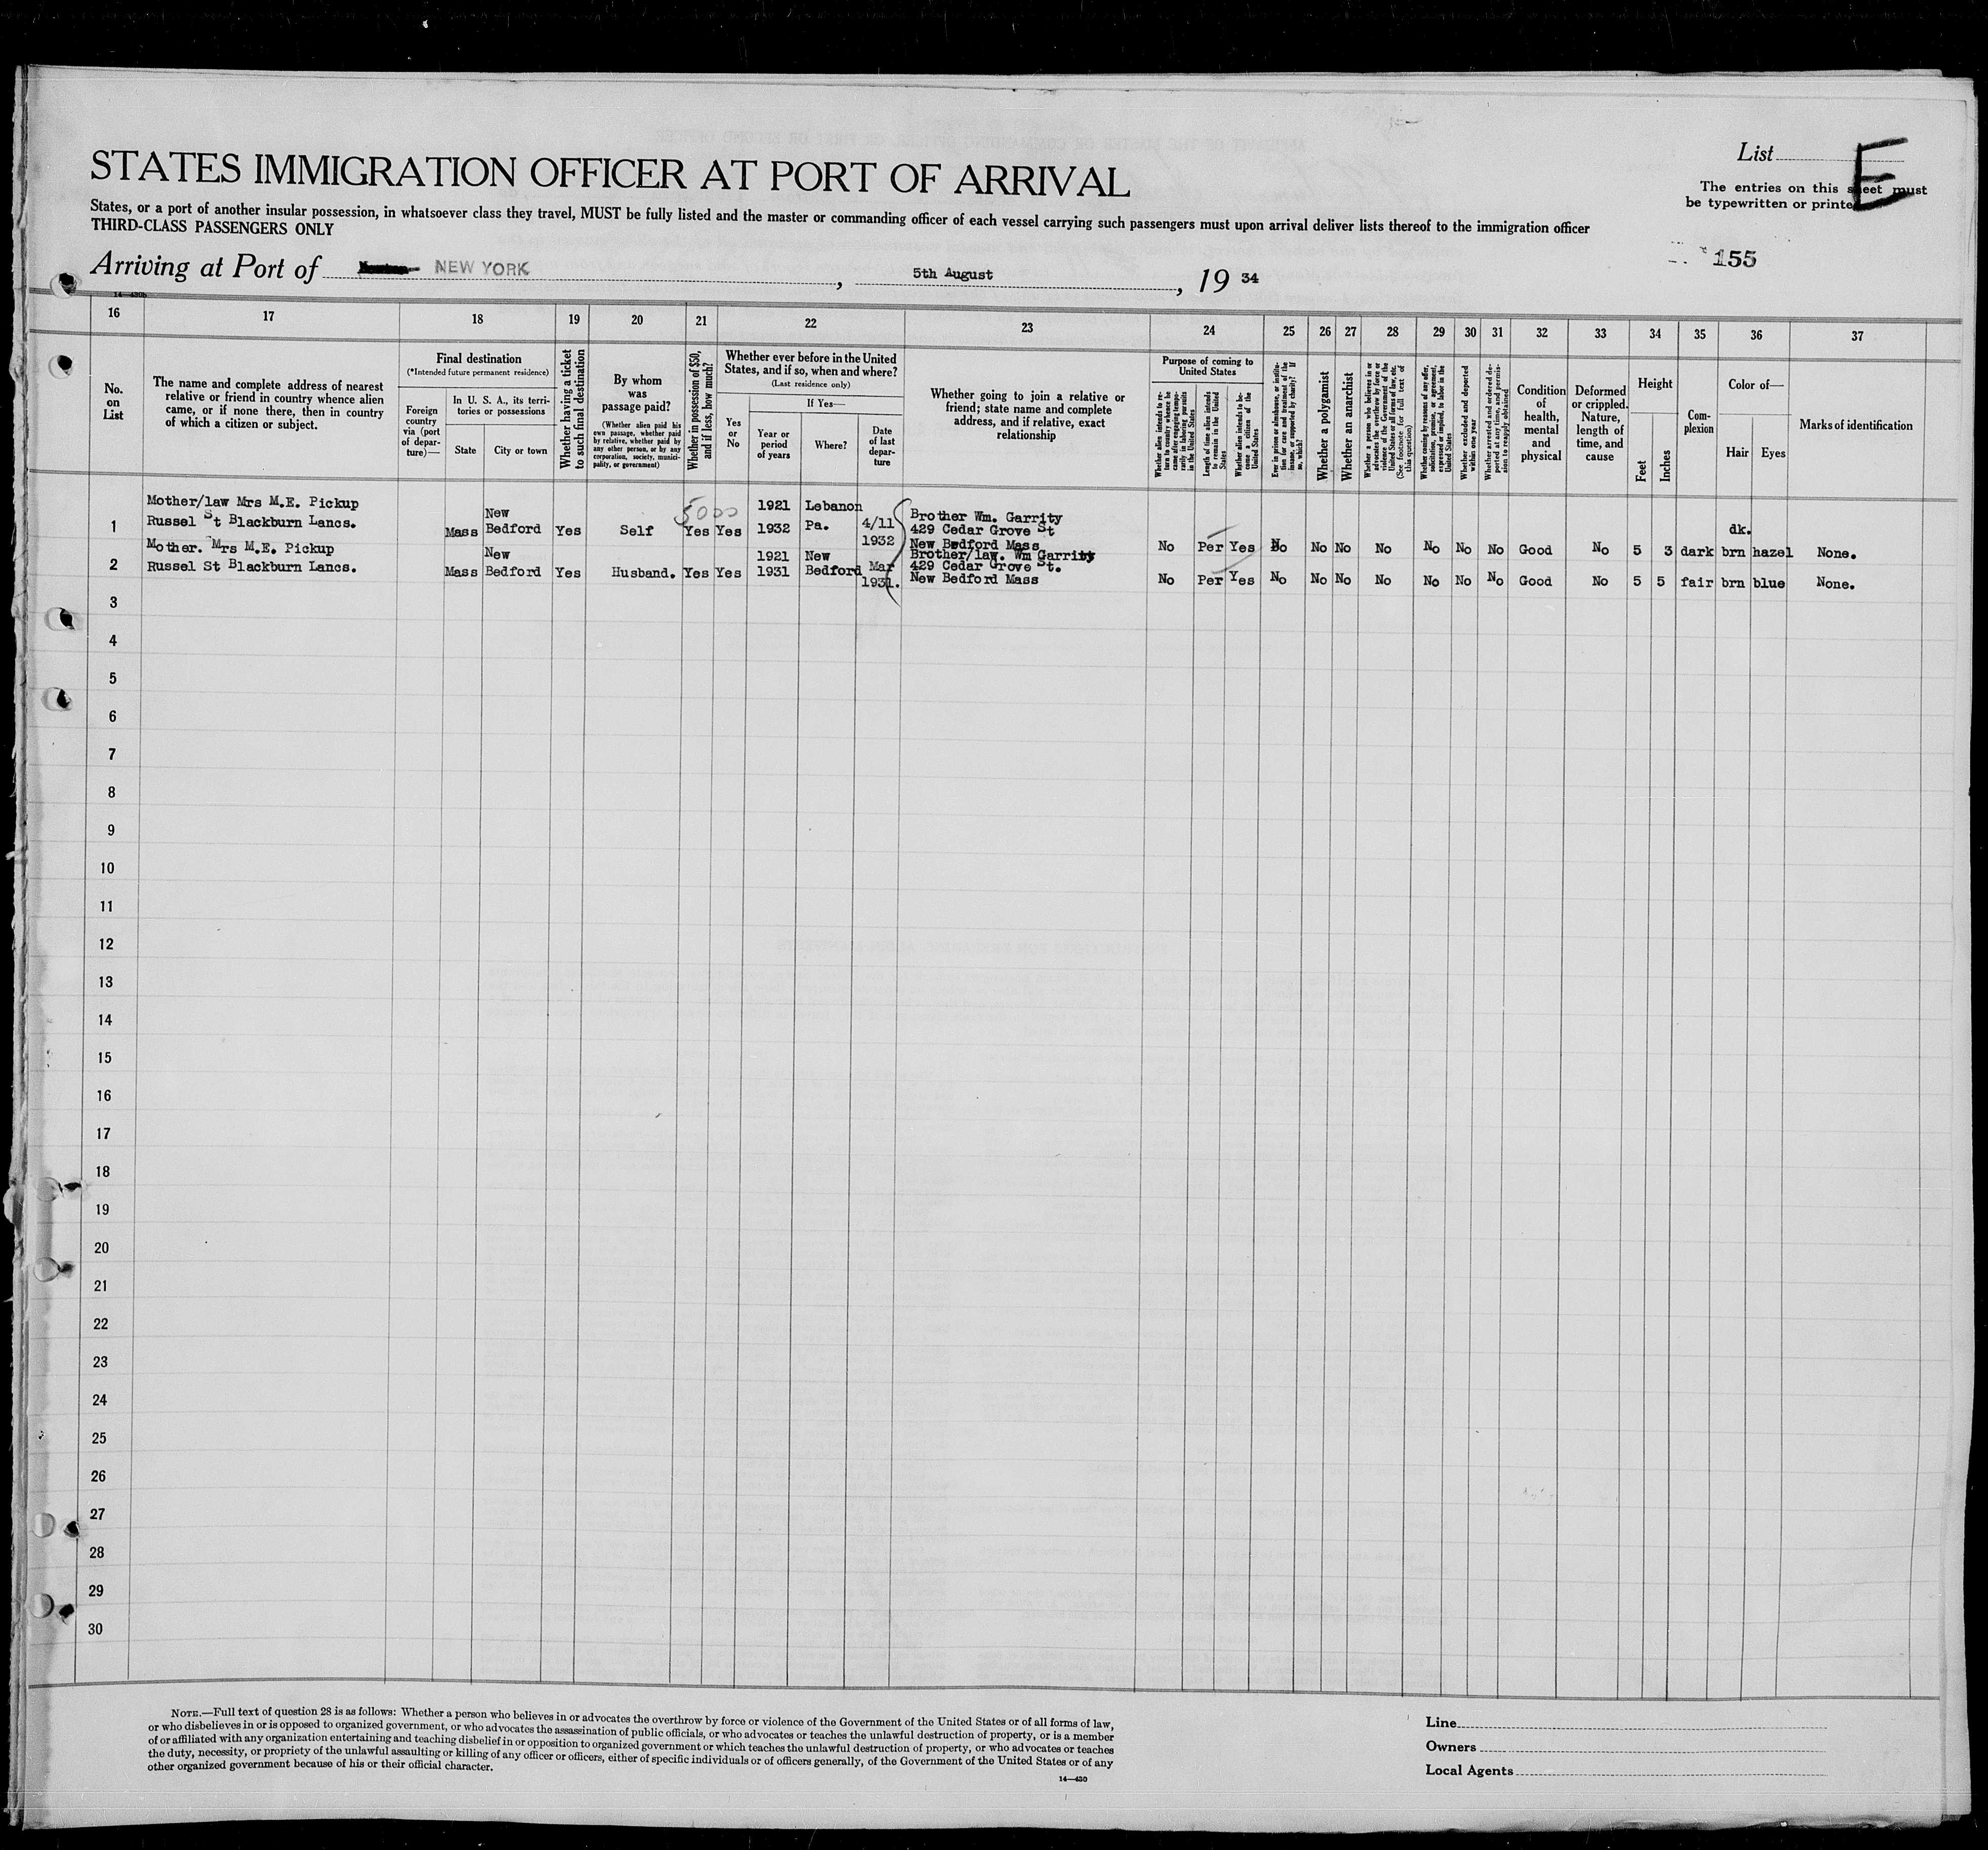 STATES IMMIGRATION OFFICER AT PORT OF ARRIVAL
List
E
The entries on this sheet must
be typewritten or printed
States, or a port of another insular possession, in whatsoever class they travel, MUST be fully listed and the master or commanding officer of each vessel carrying such passengers must upon arrival deliver lists thereof to the immigration officer
THIRD-CLASS PASSENGERS ONLY
155
Arriving at Port of NEW YORK, 5th August, 19 34
14—430b
16 17 18 19 20 21 22 23 24 25 26 27 28 29 30 31 32 33 34 35 36 37
No. on List
The name and complete address of nearest
relative or friend in country whence alien
came, or if none there, then in country
of which a citizen or subject.
Final destination
(*Intended future permanent residence)
Foreign country via (port of departure)—
In U. S. A., its territories or possessions
State
City or town
Whether having a ticket to such final destination
By whom was passage paid?
(Whether alien paid his own passage, whether paid by relative, whether paid by any other person, or by any corporation, society, municipality, or government)
Whether in possession of $50, and if less, how much?
Whether ever before in the United
States, and if so, when and where?
(Last residence only)
Yes or No
If Yes—
Year or period of years
Where?
Date of last departure
Whether going to join a relative or
friend; state name and complete
address, and if relative, exact
relationship
Purpose of coming to United States
Whether alien intends to return to country whence he came after engaging temporarily in laboring pursuits in the United States
Length of time alien intends to remain in the United States
Whether alien intends to become a citizen of the United States
Ever in prison or almshouse, or institution for care and treatment of the insane, or supported by charity? If so, which?
Whether a polygamist
Whether an anarchist
Whether a person who believes in or advocates the overthrow by force or violence of the Government of the United States or all forms of law, etc. (See footnote for full text of this question)
Whether coming by reasons of any offer, solicitation, promise, or agreement, expressed or implied, to labor in the United States
Whether excluded and deported within one year
Whether arrested and ordered deported at any time, and permission to reapply obtained
Condition of health, mental and physical
Deformed or crippled. Nature, length of time, and cause
Height
Feet
Inches
Complexion
Color of—
Hair
Eyes
Marks of identification
Mother/law Mrs M.E. Pickup
1 Russel St Blackburn Lancs.
Mass New Bedford Yes Self 5000 Yes Yes 1921 1932 Lebanon Pa. 4/11 1932
Brother Wm. Garrity
429 Cedar Grove St
New Bedford Mass
No Per Yes No No No No No No No Good No 5 3 dark dk. brn hazel None.
Mother. Mrs M.E. Pickup
2 Russel St Blackburn Lancs.
Mass New Bedford Yes Husband. Yes Yes 1921 1931 New Bedford Mar 1931.
Brother/law. Wm Garrity
429 Cedar Grove St.
New Bedford Mass
No Per Yes No No No No No No No Good No 5 5 fair brn blue None.
3
4
5
6
7
8
9
10
11
12
13
14
15
16
17
18
19
20
21
22
23
24
25
26
27
28
29
30
NOTE.—Full text of question 28 is as follows: Whether a person who believes in or advocates the overthrow by force or violence of the Government of the United States or of all forms of law,
or who disbelieves in or is opposed to organized government, or who advocates the assassination of public officials, or who advocates or teaches the unlawful destruction of property, or is a member
of or affiliated with any organization entertaining and teaching disbelief in or opposition to organized government or which teaches the unlawful destruction of property, or who advocates or teaches
the duty, necessity, or propriety of the unlawful assaulting or killing of any officer or officers, either of specific individuals or of officers generally, of the Government of the United States or of any
other organized government because of his or their official character.
14—430
Line
Owners
Local Agents